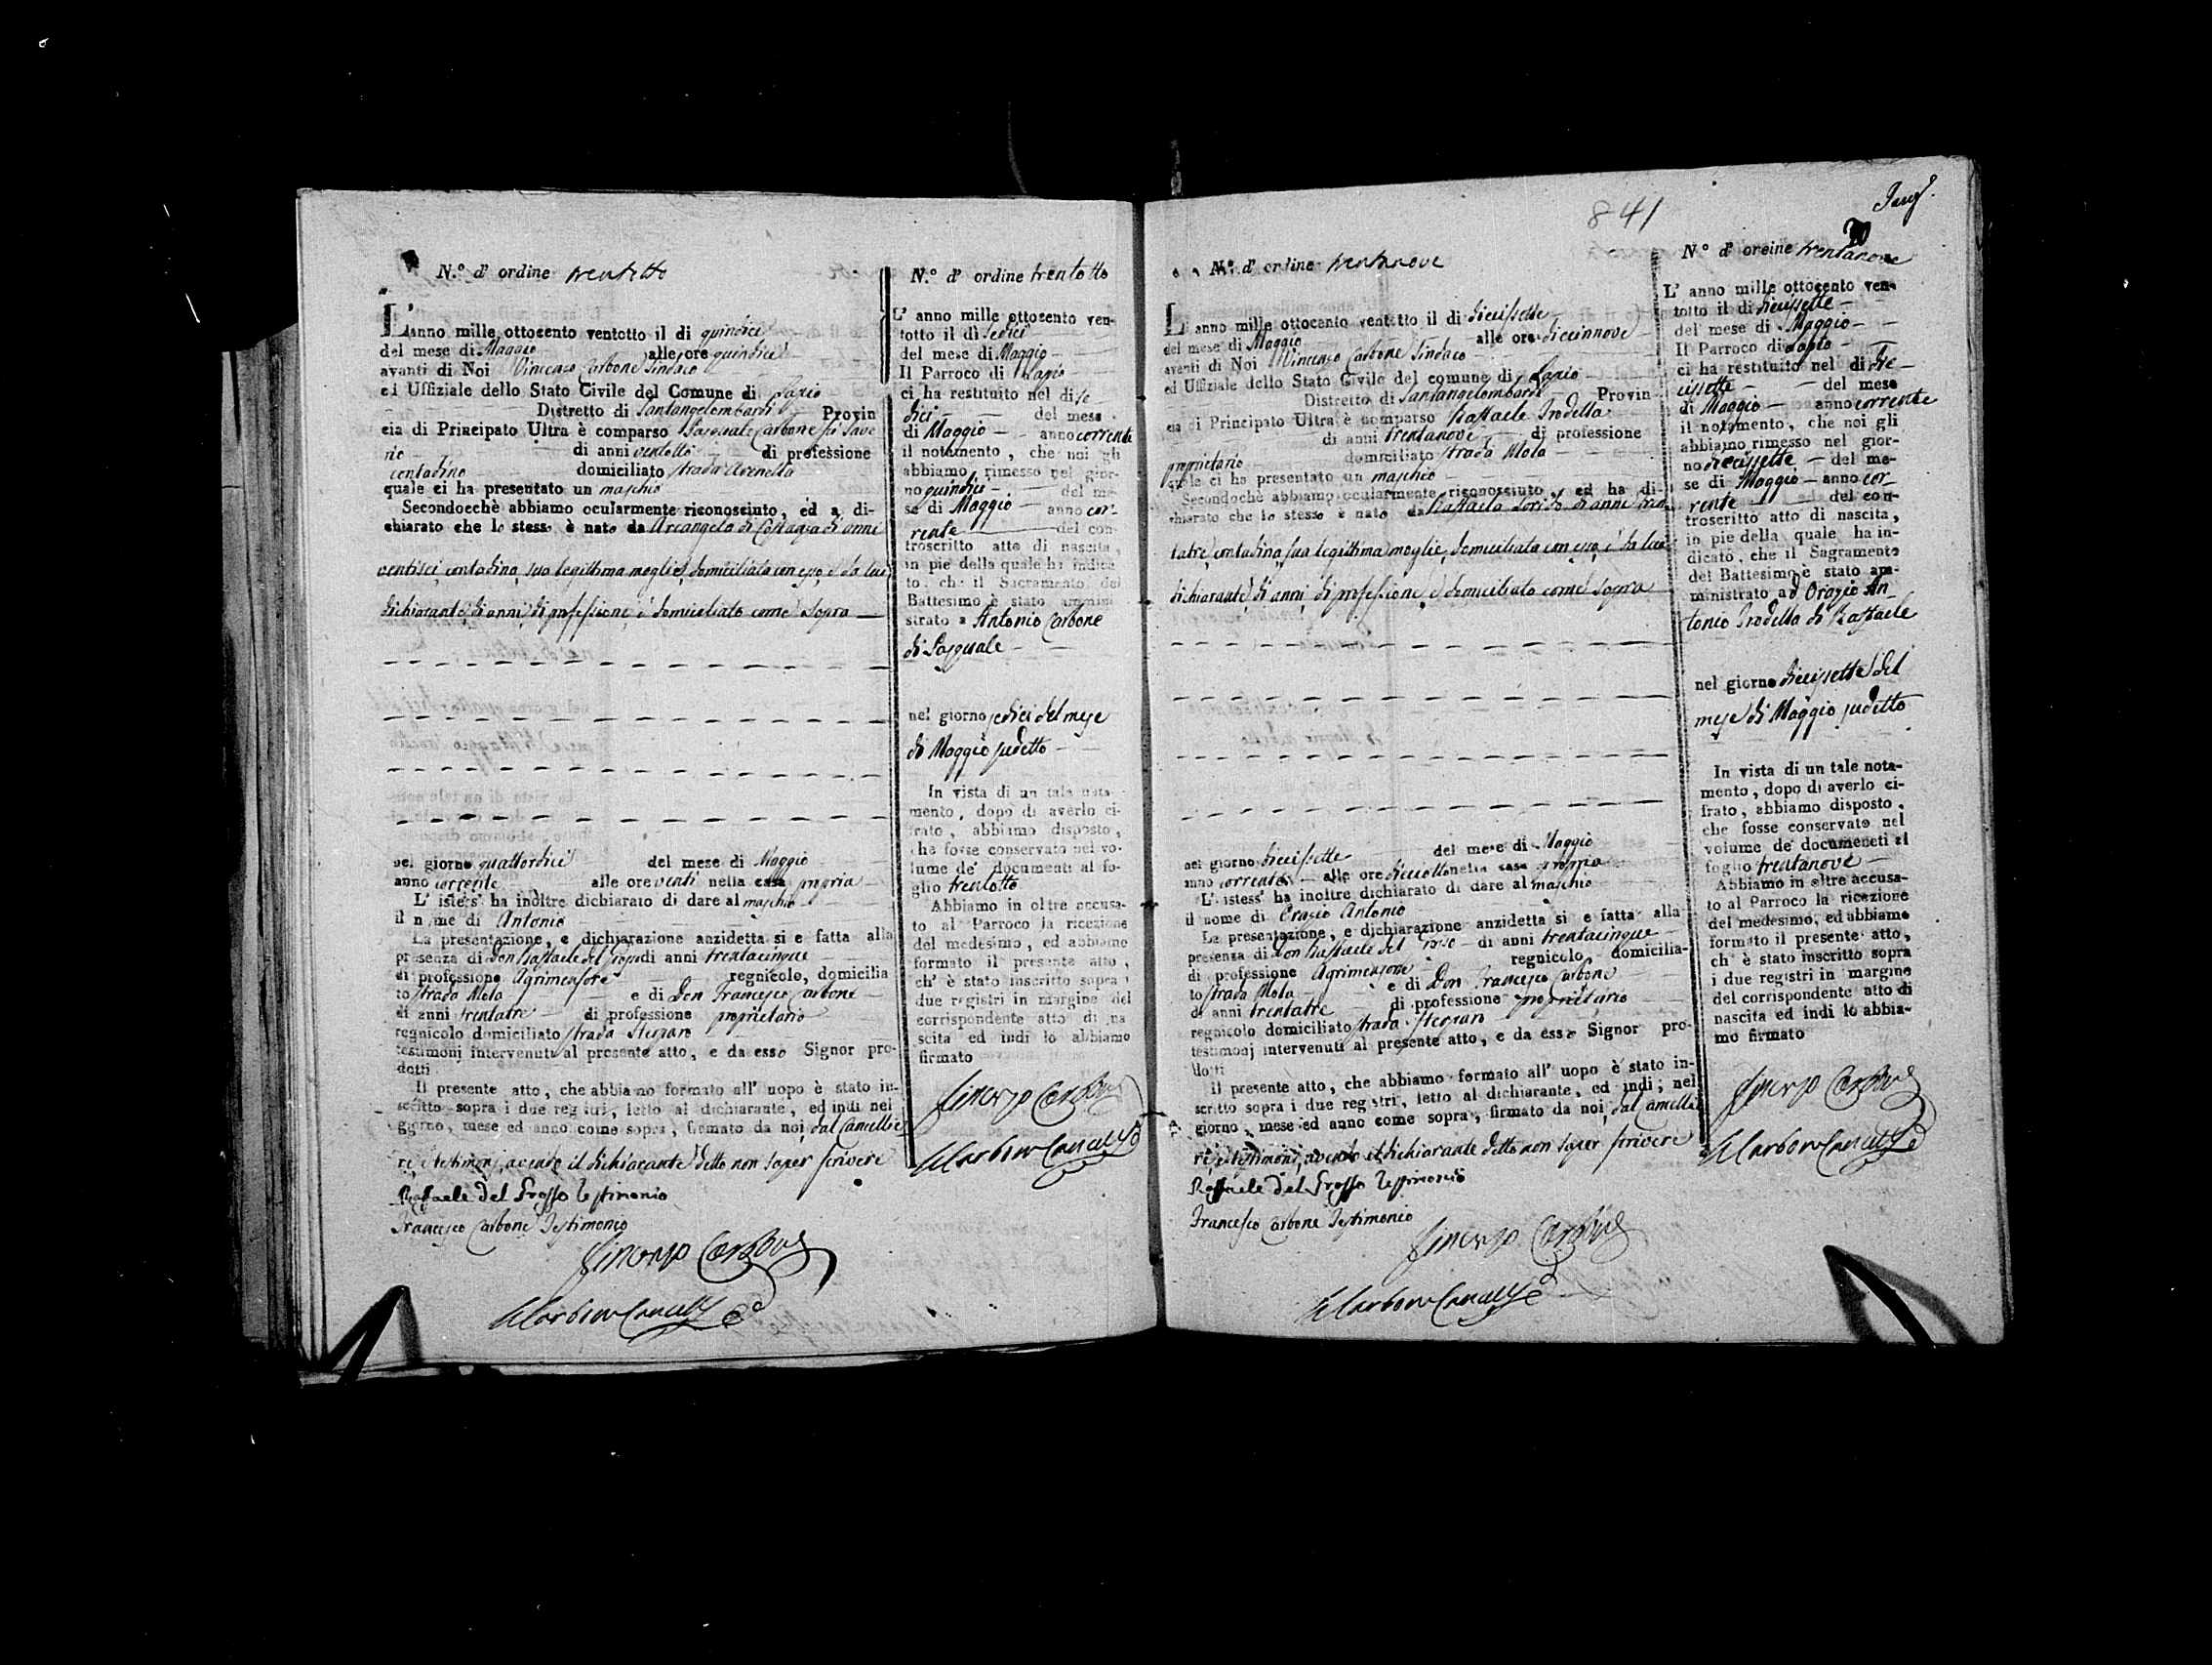 N.º d' ordine trentotto
L'anno mille ottocento ventotto il di quindici
del mese di Maggio alle ore quindici
avanti di Noi Vincenzo Carbone Sindaco
ed Uffiziale dello Stato Civile del Comune di Lapio
Distretto di Santangelombardi Provin
cia di Principato Ultra è comparso Pasquale Carbone fu Save
rio di anni ventotto di professione
contadino domiciliato strada
quale ci ha presentato un maschio
Secondocchè abbiamo ocularmente riconosciuto, ed a di-
chiarato che lo stesso è nato da Arcangela di Costanza di anni
ventisei, contadina, sua legittima moglie, domiciliata con esso, e da lui
dichiarante, di anni, di professione, e domiciliato come sopra
nel giorno quattordici del mese di Maggio
anno corrente alle ore venti nella casa propria
L' istess' ha inoltre dichiarato di dare al maschio
il nome di Antonio
La presentazione, e dichiarazione anzidetta si e fatta alla
presenza di Don Raffaele del Grosso di anni trentacinque
di professione Agrimensore regnicolo, domicilia
to strada Mola e di Don Francesco Carbone
di anni trentatre di professione proprietario
regnicolo domiciliato strada
testimonj intervenuti al presente atto, e da esso Signor pro-
dotti
Il presente atto, che abbiamo formato all' uopo è stato in-
scritto sopra i due registri, letto al dichiarante, ed indi nel
giorno, mese ed anno come sopra, firmato da noi, dal Cancellie
re, e testimonj, avendo il dichiarante detto non saper scrivere
Raffaele del Grosso Testimonio
Francesco Carbone Testimonio
Vincenzo Carbone
Carbone Cancell.e
N.º d' ordine trentotto
L' anno mille ottocento ven-
totto il dì sedici
del mese di Maggio
Il Parroco di Lapio
ci ha restituito nel di se-
dici del mese
di Maggio anno corrente
il notamento, che noi gli
abbiamo rimesso nel gior-
no quindici del me
se di Maggio anno cor-
rente del con
troscritto atto di nascita,
in pie della quale ha indica
to, che il Sacramento del
Battesimo è stato ammini
strato a Antonio Carbone
di Pasquale
nel giorno sedici del mese
di Maggio sudetto
In vista di un tale nota-
mento, dopo di averlo ci-
frato, abbiamo disposto,
che fosse conservato nel vo-
lume de' documenti al fo-
glio trentotto
Abbiamo in oltre accusa-
to al Parroco la ricezione
del medesimo, ed abbiamo
formato il presente atto,
ch' è stato inscritto sopra i
due registri in margine del
corrispondente atto di na
scita ed indi lo abbiamo
firmato
Vincenzo Carbone
Carbone Cancell.e
841
N.º d' ordine trentanove
L'anno mille ottocento ventotto il di diecissette
del mese di Maggio alle ore diecinnove
avanti di Noi Vincenzo Carbone Sindaco
ed Uffiziale dello Stato Civile del comune di Lapio
Distretto di Santangelombardi Provin
cia di Principato Ultra è comparso Raffaele Trodella
di anni trentanove di professione
proprietario domiciliato strada Mola
quale ci ha presentato un maschio
Secondochè abbiamo ocularmente riconosciuto, ed ha di-
chiarato che lo stesso è nato da Raffaela di anni tren
tatre, contadina, sua legittima moglie, domiciliata con esso, e da lui
dichiarante, di anni, di professione, e domiciliato come sopra
nel giorno diecissette del mese di Maggio
anno corrente alle ore dieciotto nella casa propria
L' istess' ha inoltre dichiarato di dare al maschio
il nome di Orazio Antonio
La presentazione, e dichiarazione anzidetta si e fatta alla
presenza di Don Raffaele del di anni trentacinque
di professione Agrimensore regnicolo domicilia-
to strada Mola e di Don Francesco Carbone
di anni trentatre di professione proprietario
regnicolo domiciliato strada
testimonj intervenuti al presente atto, e da esso Signor pro-
dotti
Il presente atto, che abbiamo formato all' uopo è stato in-
scritto sopra i due registri, letto al dichiarante, ed indi, nel
giorno, mese ed anno come sopra, firmato da noi, dal Cancellie
re, e testimonj, avendo il dichiarante detto non saper scrivere
Raffaele del Grosso Testimonio
Francesco Carbone Testimonio
Vincenzo Carbone
Carbone Cancell.e
N.º d' oreine trentanove
L' anno mille ottocento ven-
totto il di diecissette
del mese di Maggio
Il Parroco di Lapio
ci ha restituito nel di die-
cissette del mese
di Maggio anno corrente
il notamento, che noi gli
abbiamo rimesso nel gior-
no diecissette del me-
se di Maggio anno cor-
rente del con-
troscritto atto di nascita,
in pie della quale ha in-
dicato, che il Sagramento
del Battesimo è stato am-
ministrato ad Orazio An-
tonio Trodella di Raffaele
nel giorno diecissette del
mese di Maggio sudetto
In vista di un tale nota-
mento, dopo di averlo ci-
frato, abbiamo disposto,
che fosse conservato nel
volume de' documeneti al
foglio trentanove
Abbiamo in oltre accusa-
to al Parroco la ricezione
del medesimo, ed abbiamo
formato il presente atto,
ch' è stato inscritto sopra
i due registri in margine
del corrispondente atto di
nascita ed indi lo abbia-
mo firmato
Vincenzo Carbone
Carbone Cancell.e